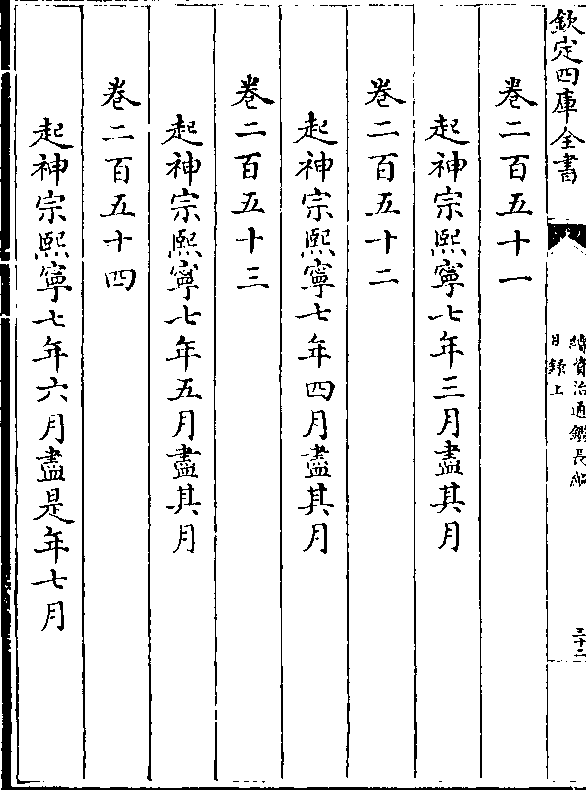 欽定四庫全書
續資治通鑑長編
目錄上
三十二
卷二百五十一
起神宗熙寧七年三月盡其月
卷二百五十二
起神宗熙寧七年四月盡其月
卷二百五十三
起神宗熙寧七年五月盡其月
卷二百五十四
起神宗熙寧七年六月盡是年七月